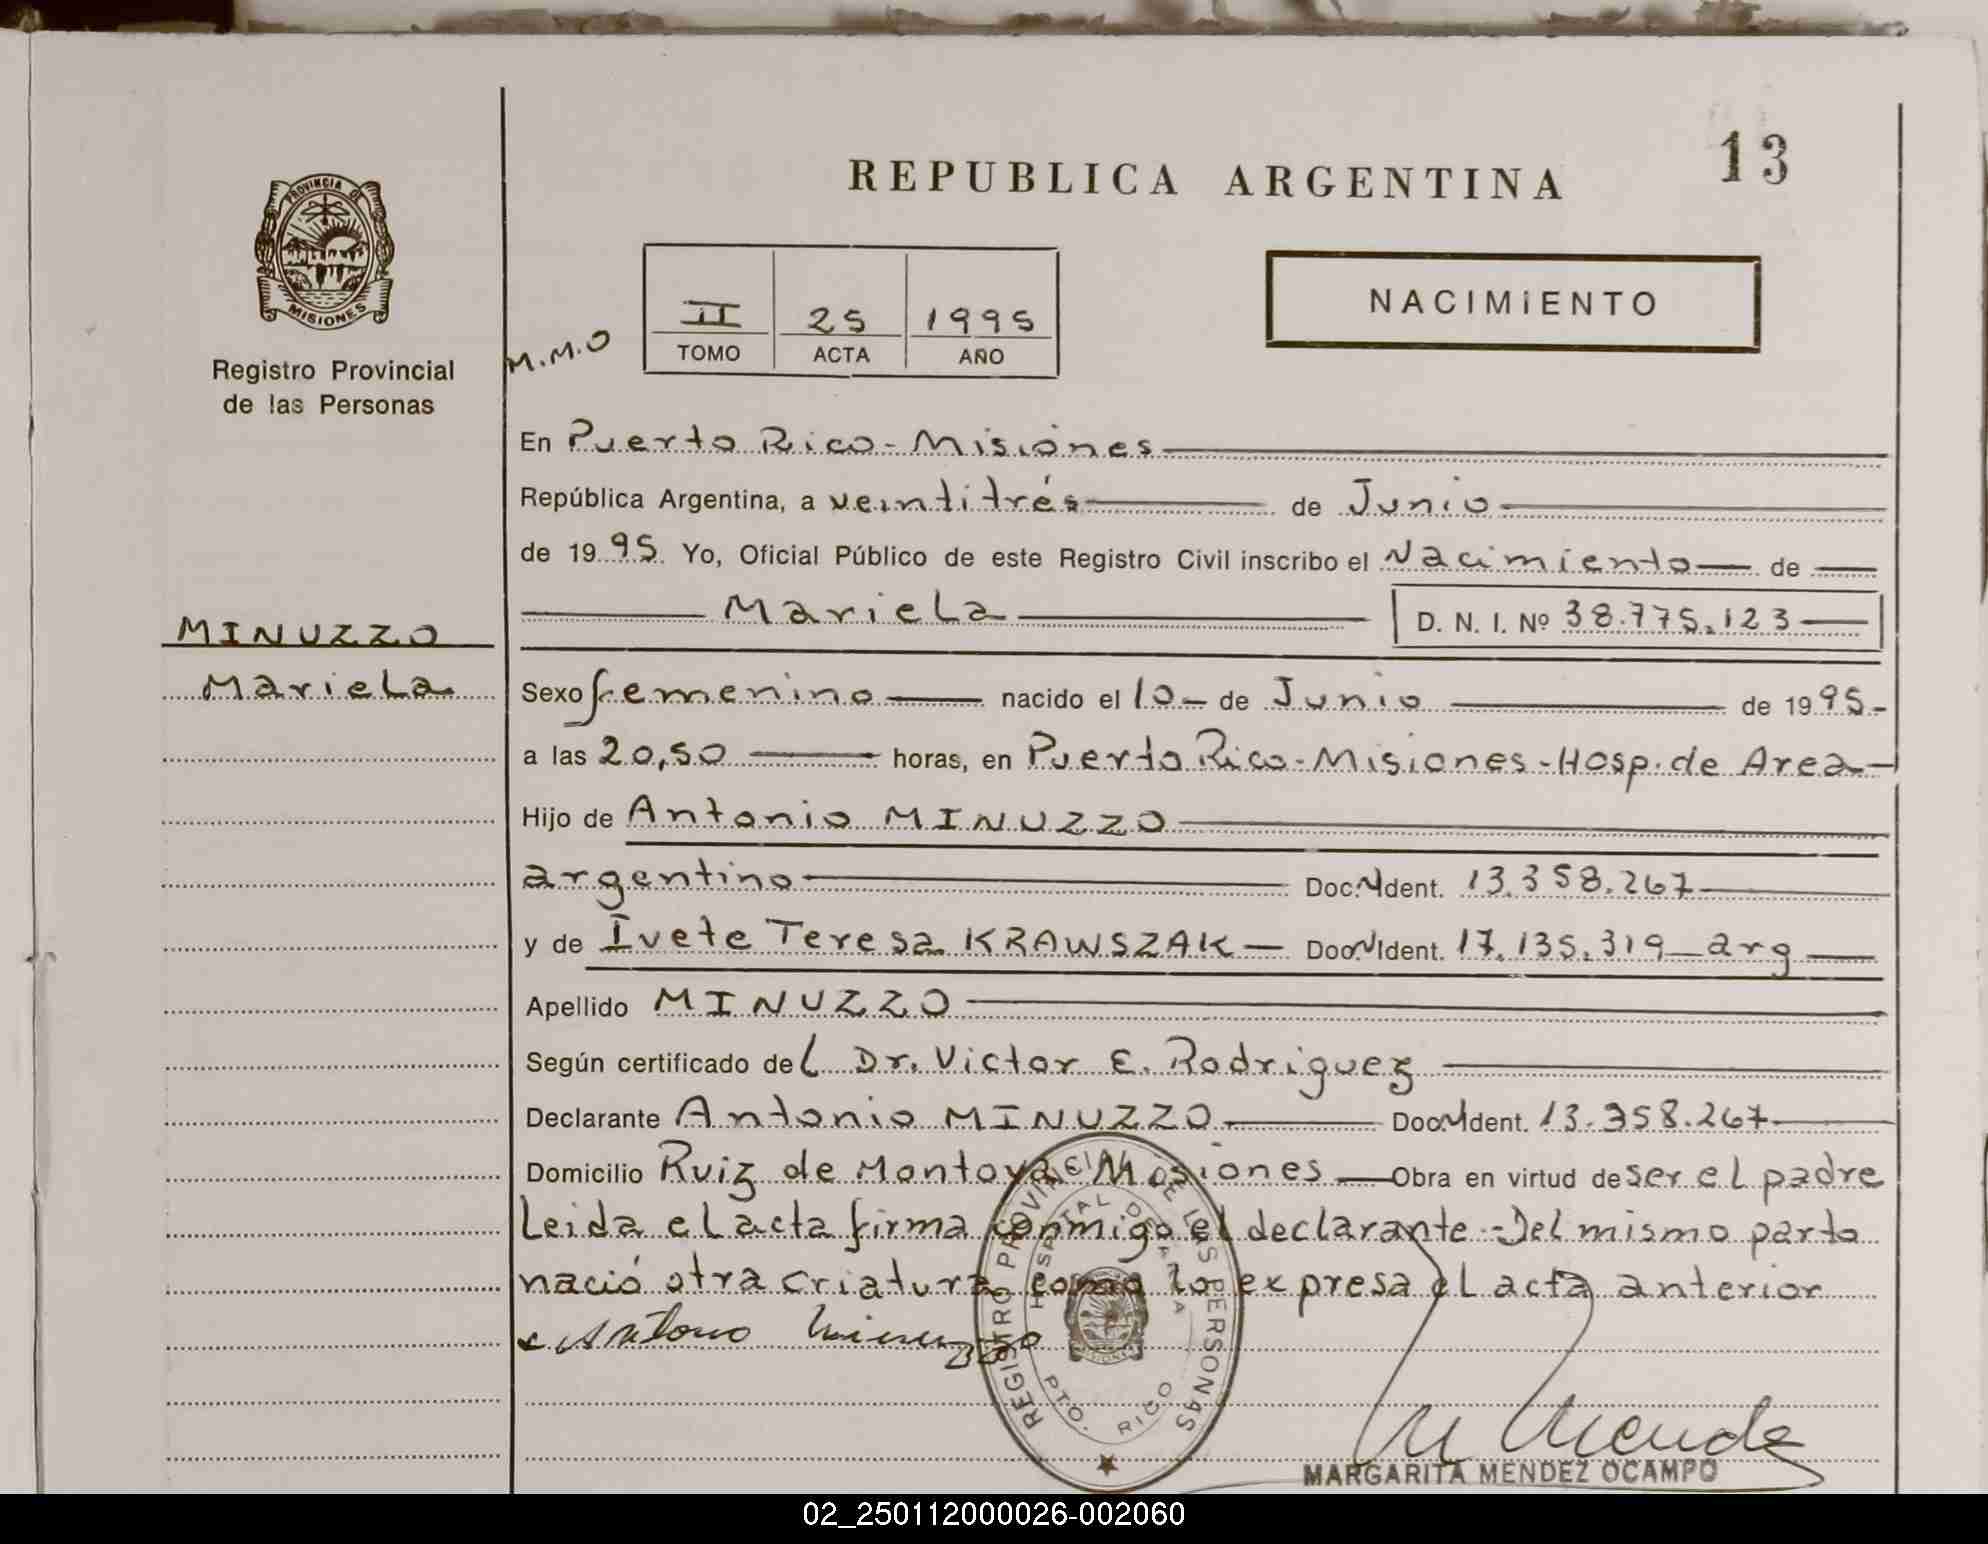 REPUBLICA ARGENTINA
13
PROVINCIA DE
MISIONES
Registro Provincial
de las Personas
M.M.O
II 25 1995
TOMO ACTA AÑO
NACIMIENTO
En Puerto Rico - Misiones
República Argentina, a veintitrés de Junio
de 1995. Yo, Oficial Público de este Registro Civil inscribo el Nacimiento de
Mariela D. N. I. Nº 38.775.123
MINUZZO
Mariela
Sexo femenino nacido el 10 de Junio de 1995
a las 20,50 horas, en Puerto Rico - Misiones - Hosp. de Area
Hijo de Antonio MINUZZO
argentino Doc. Ident. 13.358.267
y de Ivete Teresa KRAWSZAK Doc. Ident. 17.135.319 arg
Apellido MINUZZO
Según certificado del Dr. Victor E. Rodriguez
Declarante Antonio MINUZZO Doc. Ident. 13.358.267
Domicilio Ruiz de Montoya Misiones Obra en virtud de ser el padre
Leida el acta firma conmigo el declarante - Del mismo parto
nació otra criatura como lo expresa el acta anterior
Antonio Minuzzo
REGISTRO PROVINCIAL DE LAS PERSONAS
HOSPITAL DE AREA
PTO. RICO
M Mendez
MARGARITA MENDEZ OCAMPO
02_250112000026-002060